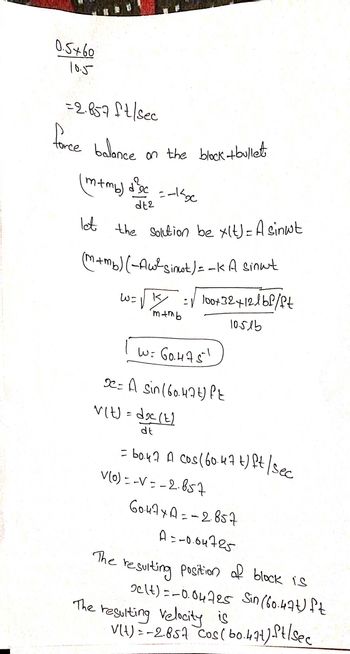 0.5×60
10.5
=2.857 ft/sec
force balance on the block+bullet
(m+mb) d²x = -kx
dt²
let the solution be x(t)=A sinωt
(m+mb)(-Aω²sinωt)= -kA sinωt
ω=√ k =√ 100×32×12 lbf/ft
m+mb 10.5lb
ω= 60.47 s⁻¹
x= A sin(60.47t) ft
v(t) = dx(t)
dt
= 60.47 A cos(60.47 t) ft/sec
v(0) = -V = -2.857
60.47×A = -2.857
A = -0.04725
The resulting position of block is
x(t) = -0.04725 sin(60.47t) ft
The resulting velocity is
v(t) = -2.857 cos(60.47t) ft/sec